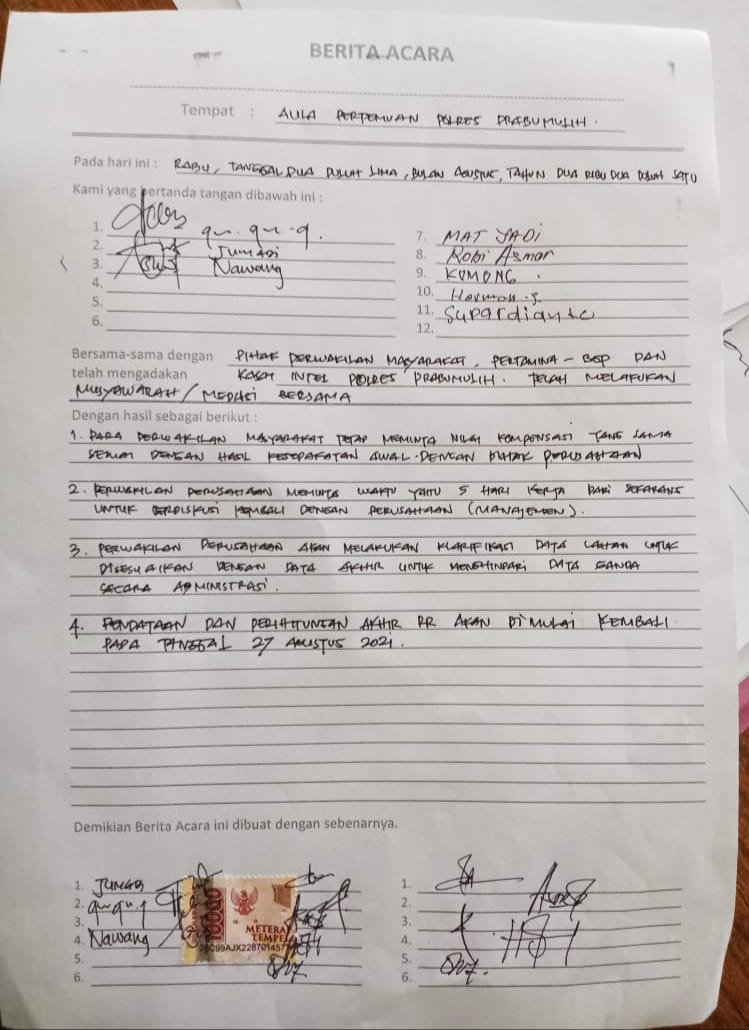 BERITA ACARA
Tempat : AULA PERTEMUAN POLRES PRABUMULIH .
Pada hari ini : RABU, TANGGAL DUA PULUH LIMA, BULAN AGUSTUS, TAHUN DUA RIBU DUA PULUH SATU
Kami yang bertanda tangan dibawah ini :
1. qu. qu. q.
2. JUMADI
3. Nawang
4.
5.
6.
7. MAT JADI
8. Robi Asmar
9. KUMONG .
10. Herman. S.
11. Supardianto
12.
Bersama-sama dengan PIHAK PERWAKILAN MASYARAKAT, PERTAMINA – BGP DAN
telah mengadakan KASAT INTEL POLRES PRABUMULIH. TELAH MELAKUKAN
MUSYAWARAH / MEDIASI BERSAMA
Dengan hasil sebagai berikut :
1. PARA PERWAKILAN MASYARAKAT TETAP MEMINTA NILAI KOMPENSASI YANG SAMA
SESUAI DENGAN HASIL KESEPAKATAN AWAL DENGAN PIHAK PERUSAHAAN
2. PERWAKILAN PERUSAHAAN MEMINTA WAKTU YAITU 5 HARI KERJA DARI SEKARANG
UNTUK BERDISKUSI KEMBALI DENGAN PERUSAHAAN (MANAJEMEN).
3. PERWAKILAN PERUSAHAAN AKAN MELAKUKAN KLARIFIKASI DATA LAHAN UNTUK
DISESUAIKAN DENGAN DATA AKHIR UNTUK MENGHINDARI DATA GANDA
SECARA ADMINISTRASI.
4. PENDATAAN DAN PERHITUNGAN AKHIR RR AKAN DIMULAI KEMBALI
PADA TANGGAL 27 AGUSTUS 2021.
Demikian Berita Acara ini dibuat dengan sebenarnya.
1. JUMADI
2. qu qu. q
3.
4. Nawang
5.
6.
10000
METERAI
TEMPEL
1.
2.
3.
4.
5.
6.